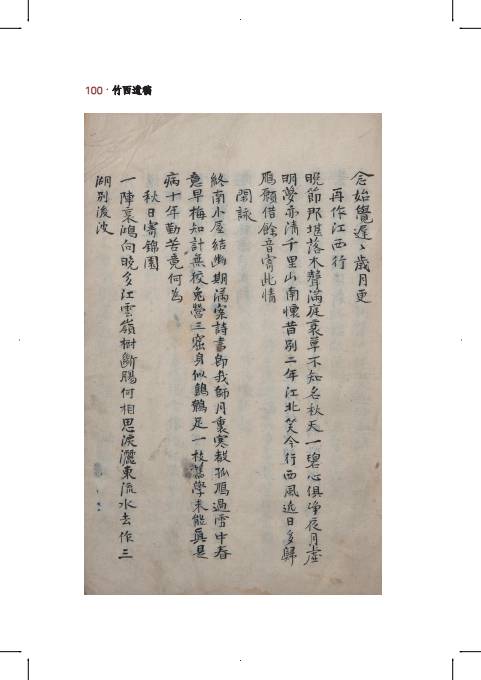 100 · 竹西遺稿
念始覺遲々歲月更
再作江西行
晚節那堪落木聲滿庭衰草不知名秋天一碧心俱淨夜月虛
明夢亦清千里山南懷昔別二年江北笑今行西風逈日多歸
鴈願借餘音寄此情
閑詠
終南小屋結幽期滿案詩書即我師月裏寒敲孤鴈過雪中春
意早梅知計無狡兔營三窟身似鷦鷯足一枝舊學未能眞是
病十年勤苦竟何為
秋日寄錦園
一陣哀鴻向晚多江雲嶺樹斷膓何相思淚灑東流水去作三
湖別後波